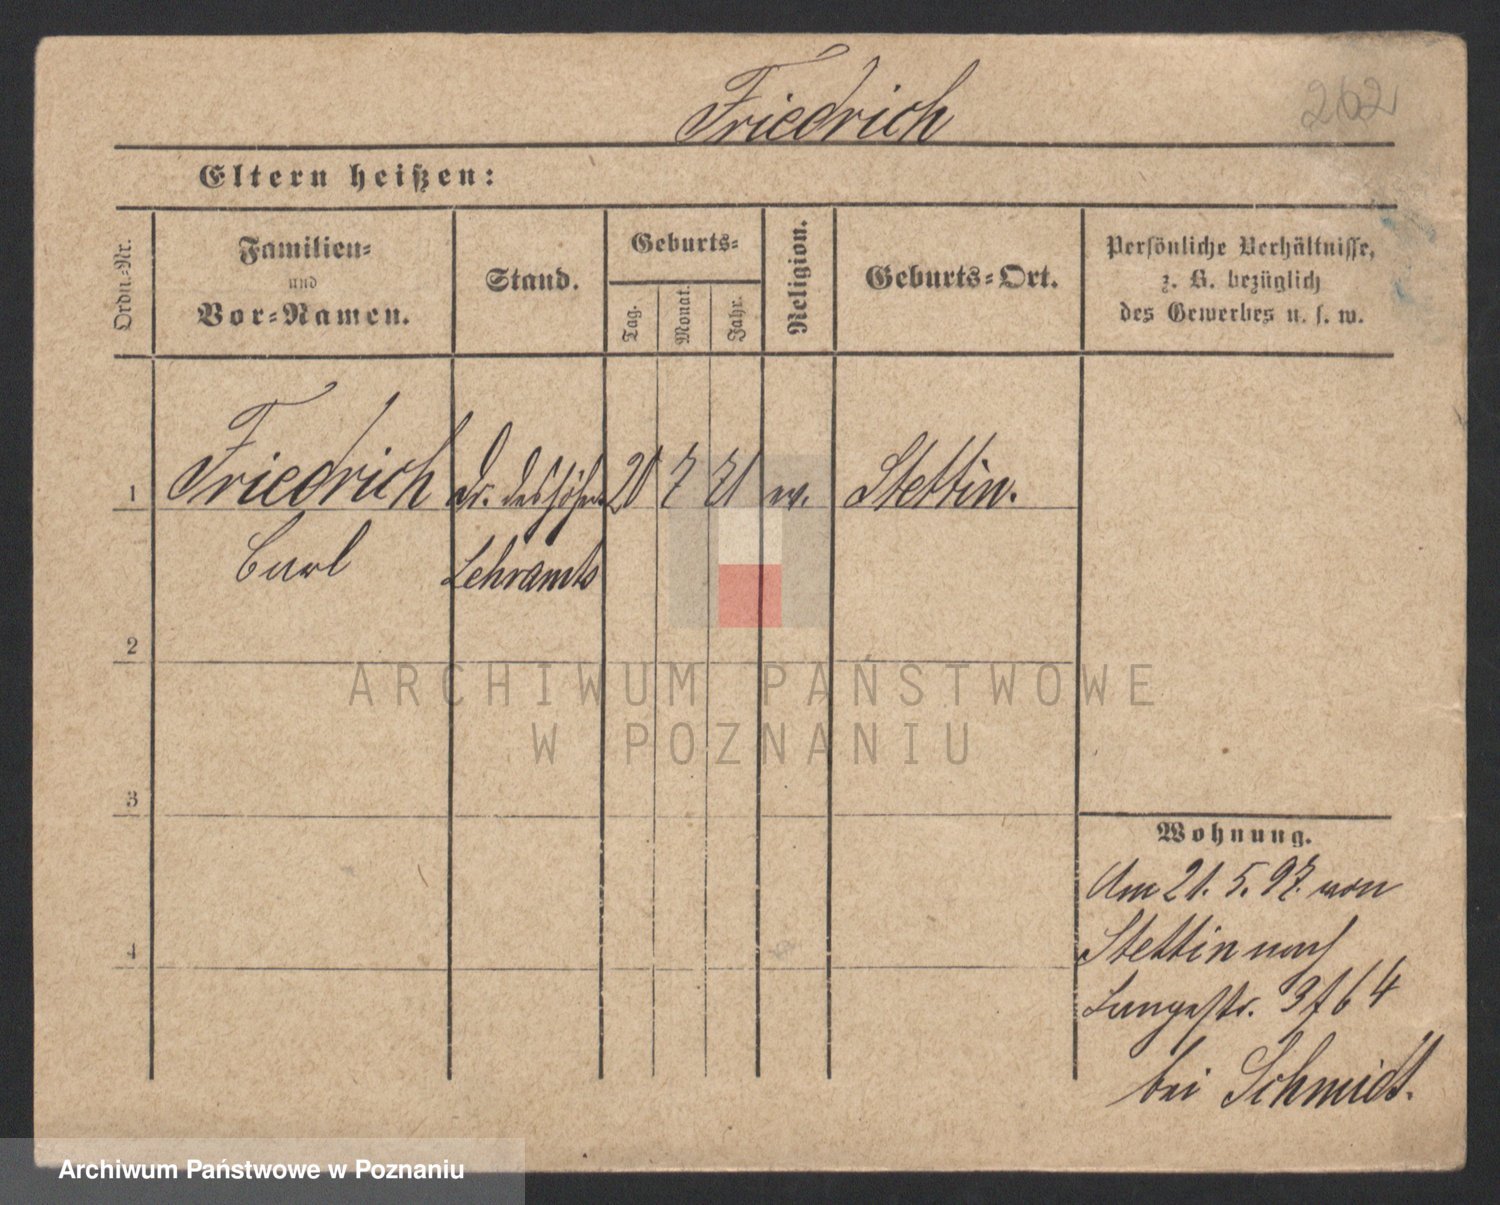 Friedrich
262
Eltern heißen:
Ordn.-Nr.
Familien-
und
Vor-Namen.
Stand.
Geburts-
Tag.
Monat.
Jahr.
Religion.
Geburts-Ort.
Persönliche Verhältnisse,
z. B. bezüglich
des Gewerbes u. s. w.
1
Friedrich
Dr. des höher
20
7
71
ev.
Stettin.
Carl
Lehramts
2
ARCHIWUM PAŃSTWOWE
W POZNANIU
3
Wohnung.
Am 21. 5. 97. von
Stettin nach
4
Langestr. 3 64
bei Schmidt.
Archiwum Państwowe w Poznaniu